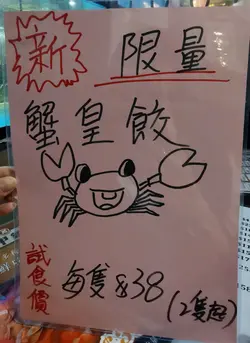 新
限量
蟹皇餃
試食價
每隻$38
(2隻起)